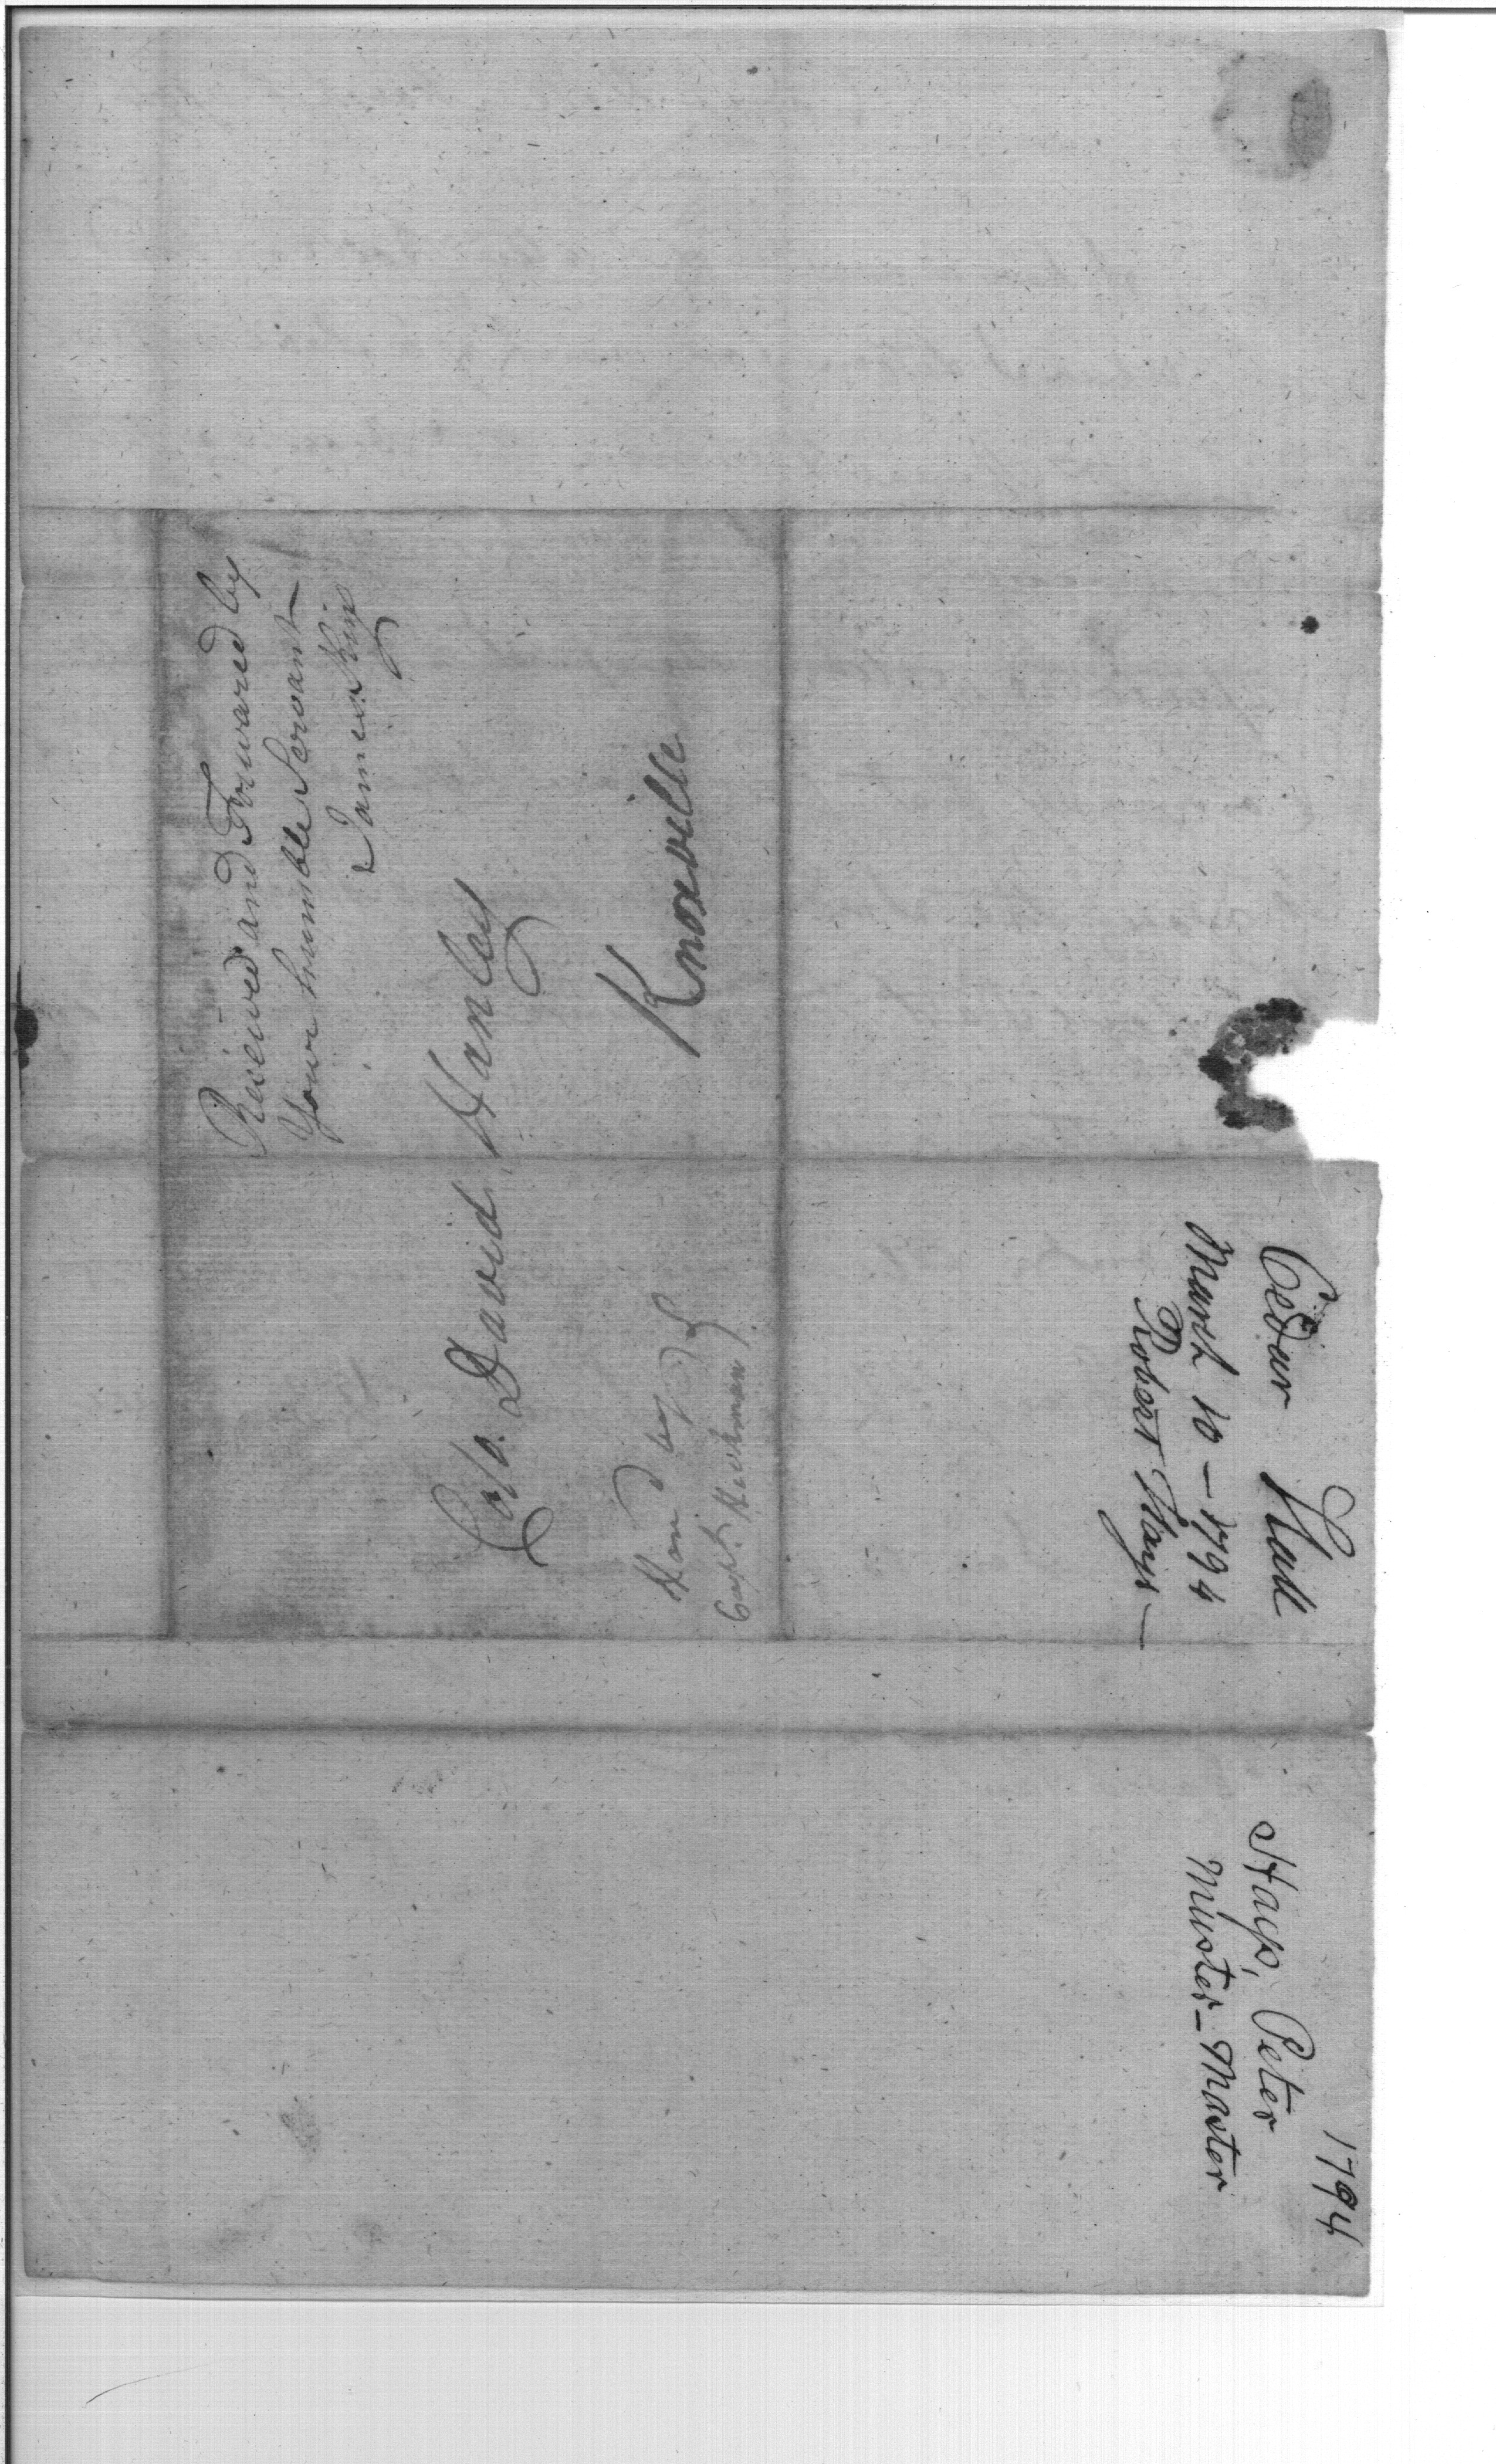 Received and Forward by
Your humble Servant
James King
Colo. David Hanley
Knoxville
Hond by
Capt.
Cedar Hill
March 10 - 1794
Robert Hays -
1794
Hays, Peter
Muster-Master